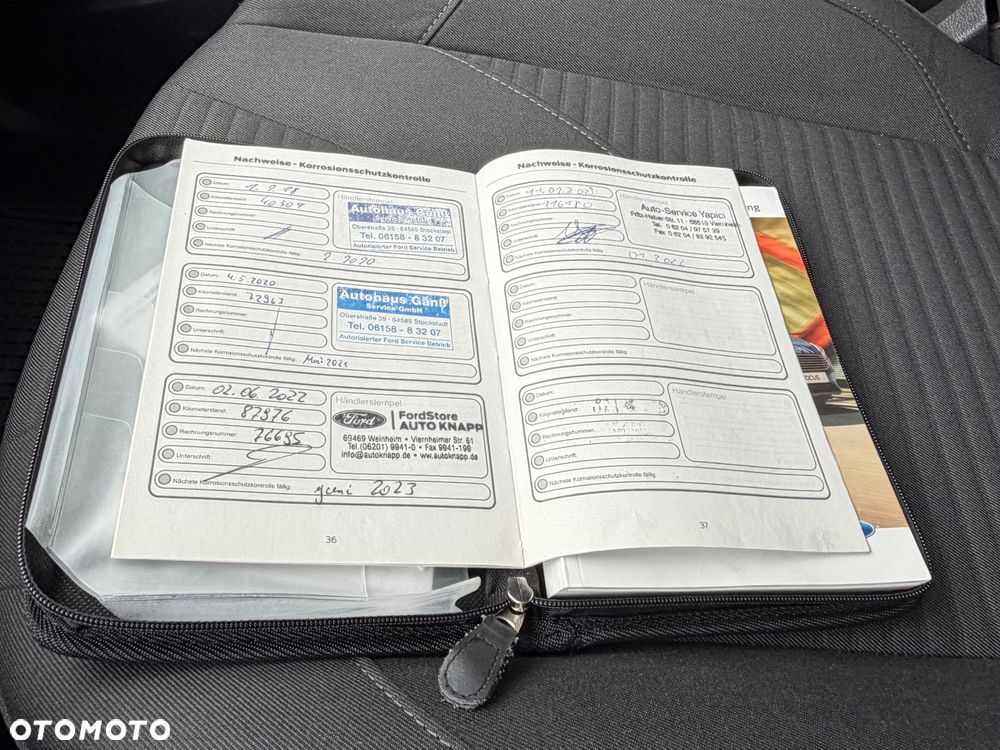 Nachweise - Korrosionsschutzkontrolle
Datum: 1.2.18
Kilometerstand: 40304
Rechnungsnummer:
Unterschrift:
Nächste Korrosionsschutzkontrolle fällig: 2.2020
Händlerstempel
Autohaus Ganß
Service GmbH
Oberstraße 39 - 64589 Stockstadt
Tel. 06158 - 8 32 07
Autorisierter Ford Service Betrieb
Datum: 4.5.2020
Kilometerstand: 72363
Rechnungsnummer:
Unterschrift:
Nächste Korrosionsschutzkontrolle fällig: Mai 2021
Autohaus Ganß
Service GmbH
Oberstraße 39 - 64589 Stockstadt
Tel. 06158 - 8 32 07
Autorisierter Ford Service Betrieb
Datum: 02.06.2022
Kilometerstand: 87976
Rechnungsnummer: 76695
Unterschrift:
Nächste Korrosionsschutzkontrolle fällig: Juni 2023
Händlerstempel
Ford FordStore
AUTO KNAPP
69469 Weinheim • Viernheimer Str. 61
Tel. (06201) 9941-0 • Fax 9941-199
info@autoknapp.de • www.autoknapp.de
36
Nachweise - Korrosionsschutzkontrolle
Datum:
116180
Unterschrift:
Nächste Korrosionsschutzkontrolle fällig:
Händlerstempel
Auto-Service Yapici
Fritz-Haber-Str. 11 · 68519 Viernheim
Tel. 0 62 04 / 97 57 29
Fax 0 62 04 / 92 92 545
Datum:
Kilometerstand:
Rechnungsnummer:
Unterschrift:
Nächste Korrosionsschutzkontrolle fällig:
Händlerstempel
Datum:
Kilometerstand:
Rechnungsnummer:
Unterschrift:
Nächste Korrosionsschutzkontrolle fällig:
Händlerstempel
37
ng
OCUS
OTOMOTO